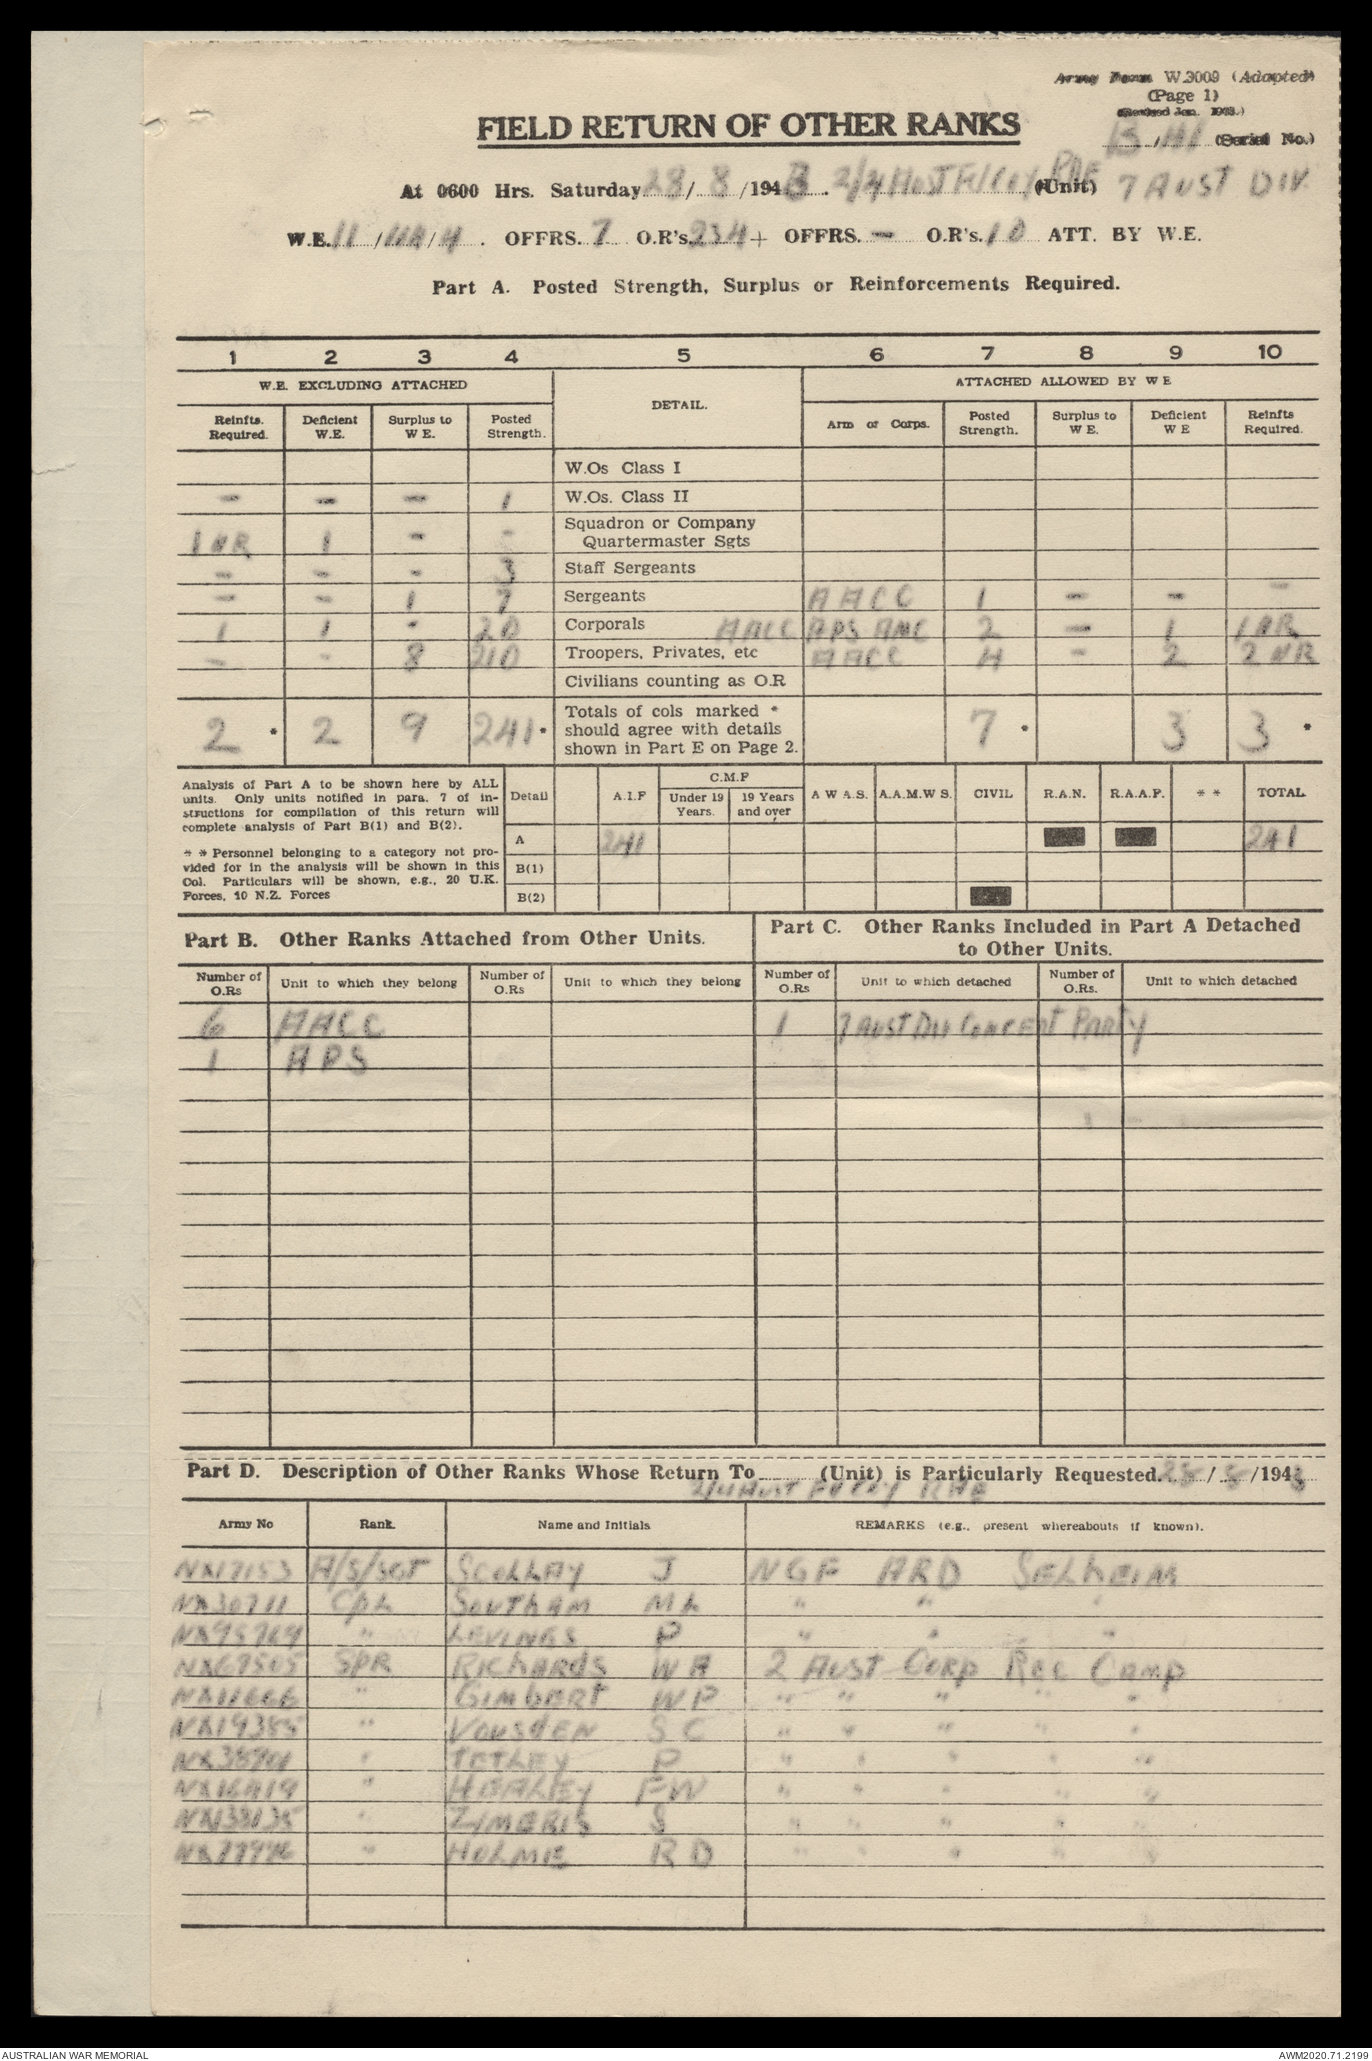 Army Form W.3009 (Adapted)
(Page 1)
(Revised Jan. 1943.)
FIELD RETURN OF OTHER RANKS
(Serial No.)
At 0600 Hrs. Saturday 28/ 8 /1943. 2/4 AUST Fd Coy RAE (Unit) 7 AUST DIV.
W.E. 11 / / 4 . OFFRS. 7 O.R's. 234 + OFFRS. — O.R's. 10 ATT. BY W.E.
Part A. Posted Strength, Surplus or Reinforcements Required.
1 2 3 4 5 6 7 8 9 10
W.E. EXCLUDING ATTACHED DETAIL. ATTACHED ALLOWED BY W E
Reinfts. Required. Deficient W.E. Surplus to W E. Posted Strength. Arm or Corps. Posted Strength. Surplus to W E. Deficient W E Reinfts Required.
W.Os Class I
- - - 1 W.Os. Class II
1 NR 1 - - Squadron or Company Quartermaster Sgts
- - - 3 Staff Sergeants
- - 1 7 Sergeants AACC 1 - - -
1 1 - 20 Corporals AACC APS AMC 2 - 1 1 NR
- - 8 210 Troopers, Privates, etc AACC 4 - 2 2 NR
Civilians counting as O.R
2 * 2 9 241 * Totals of cols marked * should agree with details shown in Part E on Page 2. 7 * 3 3 *
Analysis of Part A to be shown here by ALL
units. Only units notified in para. 7 of in-
structions for compilation of this return will
complete analysis of Part B(1) and B(2).
* * Personnel belonging to a category not pro-
vided for in the analysis will be shown in this
Col. Particulars will be shown, e.g., 20 U.K.
Forces, 10 N.Z. Forces
Detail A.I.F C.M.F Under 19 Years. 19 Years and over A W A.S. A.A.M.W S. CIVIL R.A.N. R.A.A.F. * * TOTAL
A 241 241
B(1)
B(2)
Part B. Other Ranks Attached from Other Units.
Part C. Other Ranks Included in Part A Detached
to Other Units.
Number of O.Rs Unit to which they belong Number of O.Rs Unit to which they belong Number of O.Rs Unit to which detached Number of O.Rs. Unit to which detached
6 AACC 1 7 AUST Div Concert Party
1 APS
Part D. Description of Other Ranks Whose Return To (Unit) is Particularly Requested. 28/ 8 /1943
2/4 AUST Fd Coy RAE
Army No Rank. Name and Initials REMARKS (e.g., present whereabouts if known).
NX17153 A/S/SGT SCOLLAY J NGF ARD SELHEIM
NX30711 CPL SOUTHAM M L " " "
NX95769 " LEVINGS P " " "
NX67505 SPR RICHARDS W A 2 AUST CORP REC CAMP
NX11666 " GIMBERT W P " " " " "
NX19385 " VOUSDEN S C " " " " "
" TETLEY P " " " " "
NX16419 " HEALEY F W " " " " "
NX138135 " ZIMERIS S " " " " "
" R D " " " " "
AUSTRALIAN WAR MEMORIAL
AWM2020.71.2199